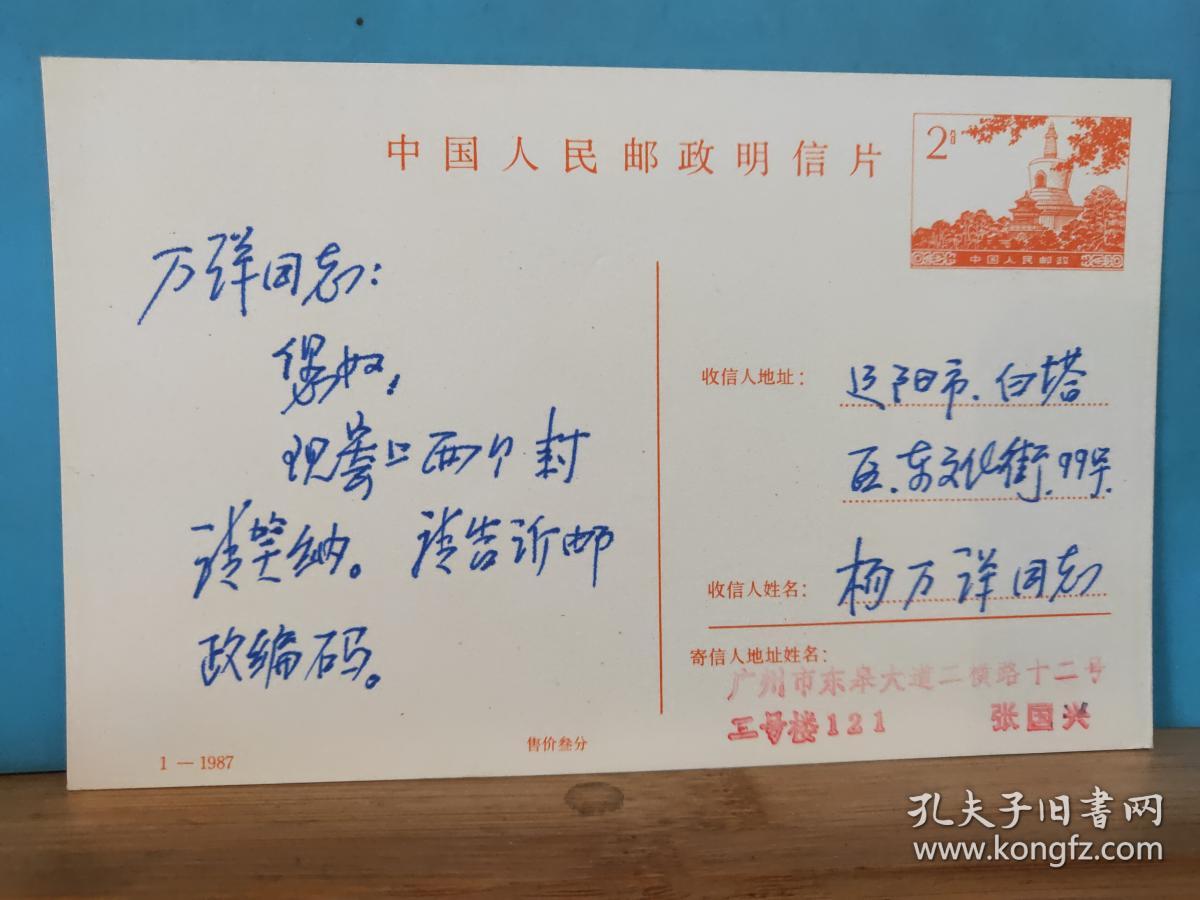 中国人民邮政明信片
2分
中国人民邮政
万祥同志:
您好,
现寄上两个封
请笑纳。请告诉邮
政编码。
收信人地址:
辽阳市、白塔
区、东文化街、99号
收信人姓名:
杨万祥同志
寄信人地址姓名:
广州市东皋大道二横路十二号
三号楼121 张国兴
售价叁分
1—1987
孔夫子旧书网
www.kongfz.com